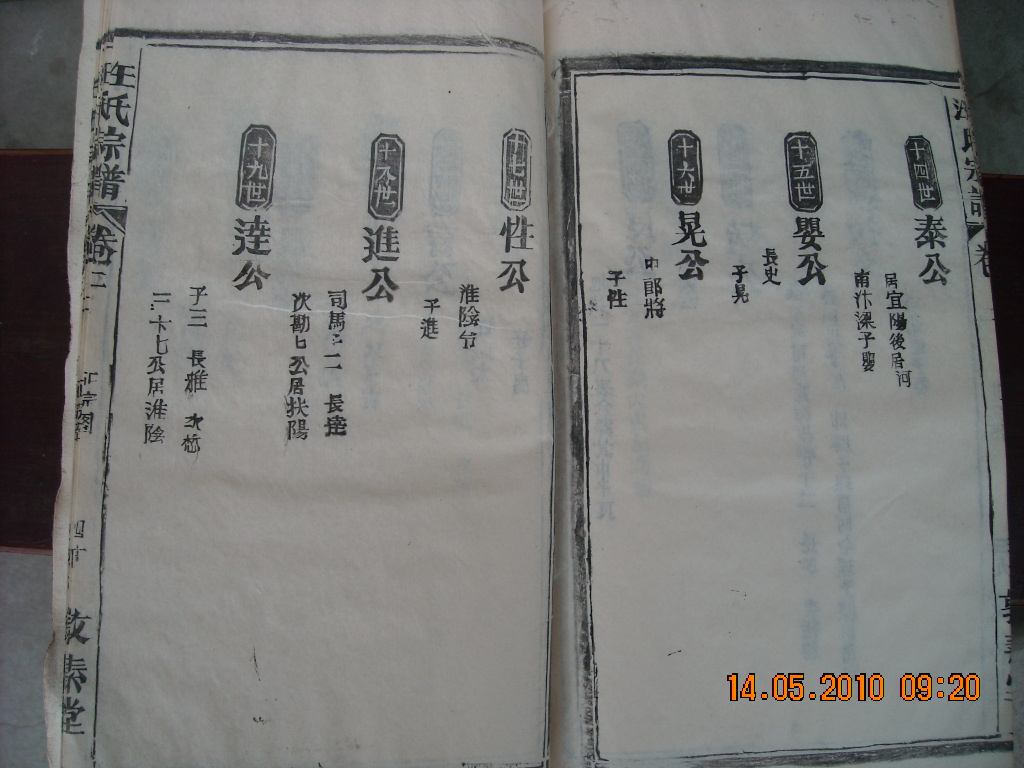 十四世
泰公
居宜陽後居河
南汴梁子嬰
十五世
嬰公
長史
子晃
十六世
晃公
中郎將
子性
十七世
性公
淮陰令
子進
十八世
進公
司馬子二 長達
次勘七公居扶陽
十九世
達公
子三 長雅 次
三十七公居淮陰
汪氏宗譜
卷二
敦素堂
14.05.2010 09:20